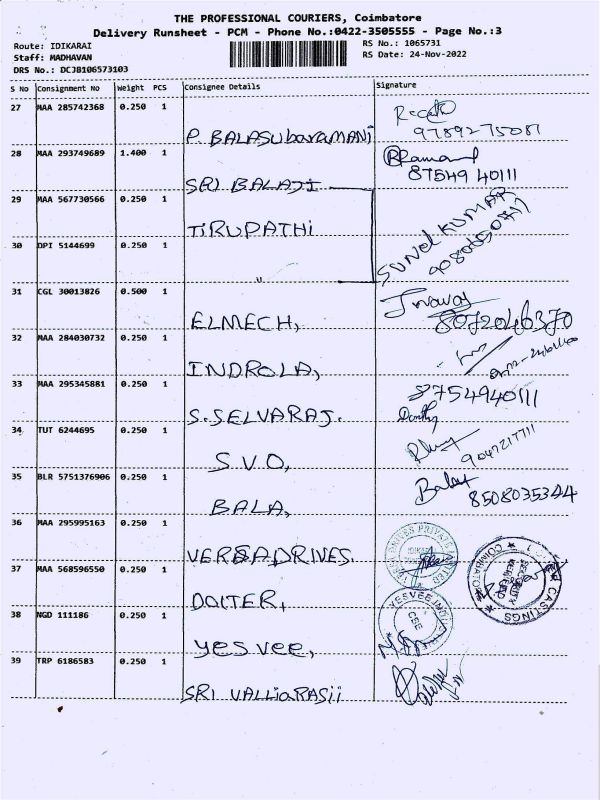 THE PROFESSIONAL COURIERS, Coimbatore
Delivery Runsheet - PCM - Phone No.:0422-3505555 - Page No.:3
Route: IDIKARAI
RS No.: 1065731
Staff: MADHAVAN
RS Date: 24-Nov-2022
DRS No.: DCJB106573103
S No Consignment No Weight PCS Consignee Details Signature
27 MAA 285742368 0.250 1
P. BALASUbaraMANi 9789275081
28 MAA 293749689 1.400 1
SRI BALAJI 87549 40111
29 MAA 567730566 0.250 1
TIRUPATHI SUNIL KUMAR
30 DPI 5144699 0.250 1
"
31 CGL 30013826 0.500 1
ELMECH, 8072046370
32 MAA 284030732 0.250 1
INDROLA,
33 MAA 295345881 0.250 1
S.SELVARAJ. 8754940111
34 TUT 6244695 0.250 1
S.V.O,
35 BLR 5751376906 0.250 1
BALA, 8508035344
36 MAA 295995163 0.250 1
VERSADRIVES.
37 MAA 568596550 0.250 1
DOITER,
COIMBATORE
CASTINGS
38 NGD 111186 0.250 1
yes vee,
YESVEE
CBE
39 TRP 6186583 0.250 1
SRI VALLiaRASii